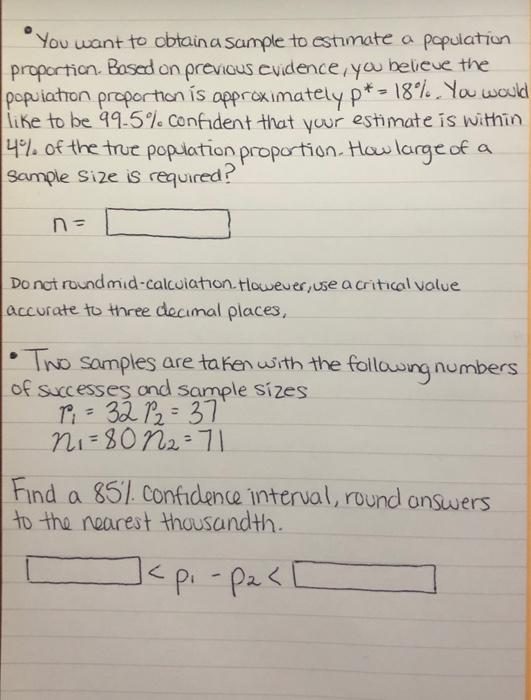 • You want to obtain a sample to estimate a population
proportion. Based on previous evidence, you believe the
population proportion is approximately p* = 18%. You would
like to be 99.5% confident that your estimate is within
4% of the true population proportion. How large of a
sample size is required?
n =
Do not round mid-calculation. However, use a critical value
accurate to three decimal places,
• Two samples are taken with the following numbers
of successes and sample sizes
r₁ = 32 r₂ = 37
n₁ = 80 n₂ = 71
Find a 85% confidence interval, round answers
to the nearest thousandth.
< p₁ - p₂ <